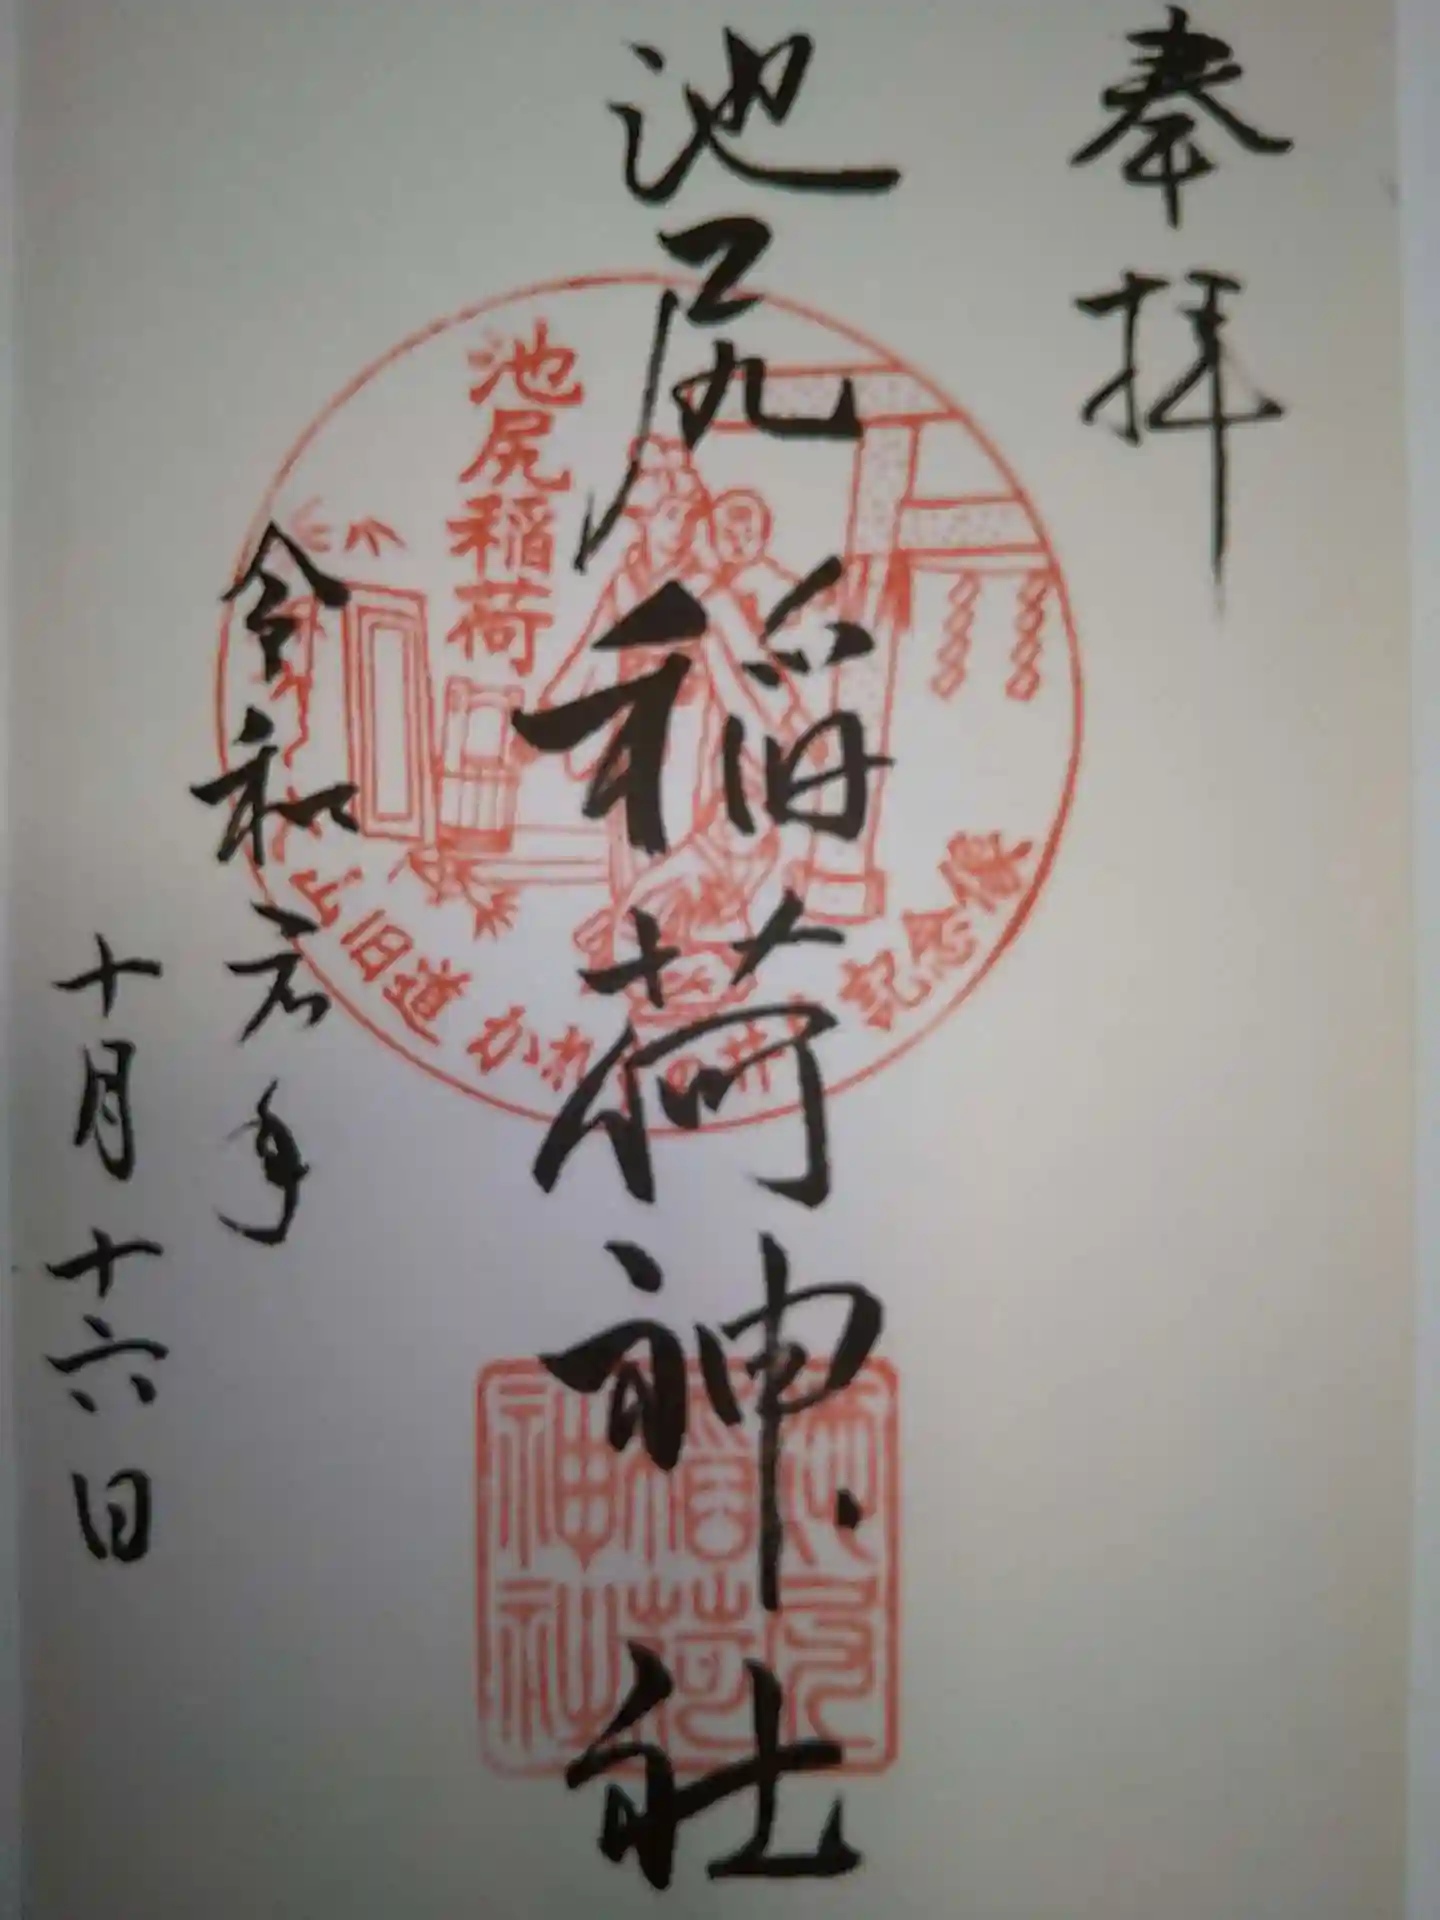 奉拝
池尻稲荷神社
令和元年
十月十六日
池尻稲荷
旧道 かれ の井 記念像
池尻
稲荷
神社